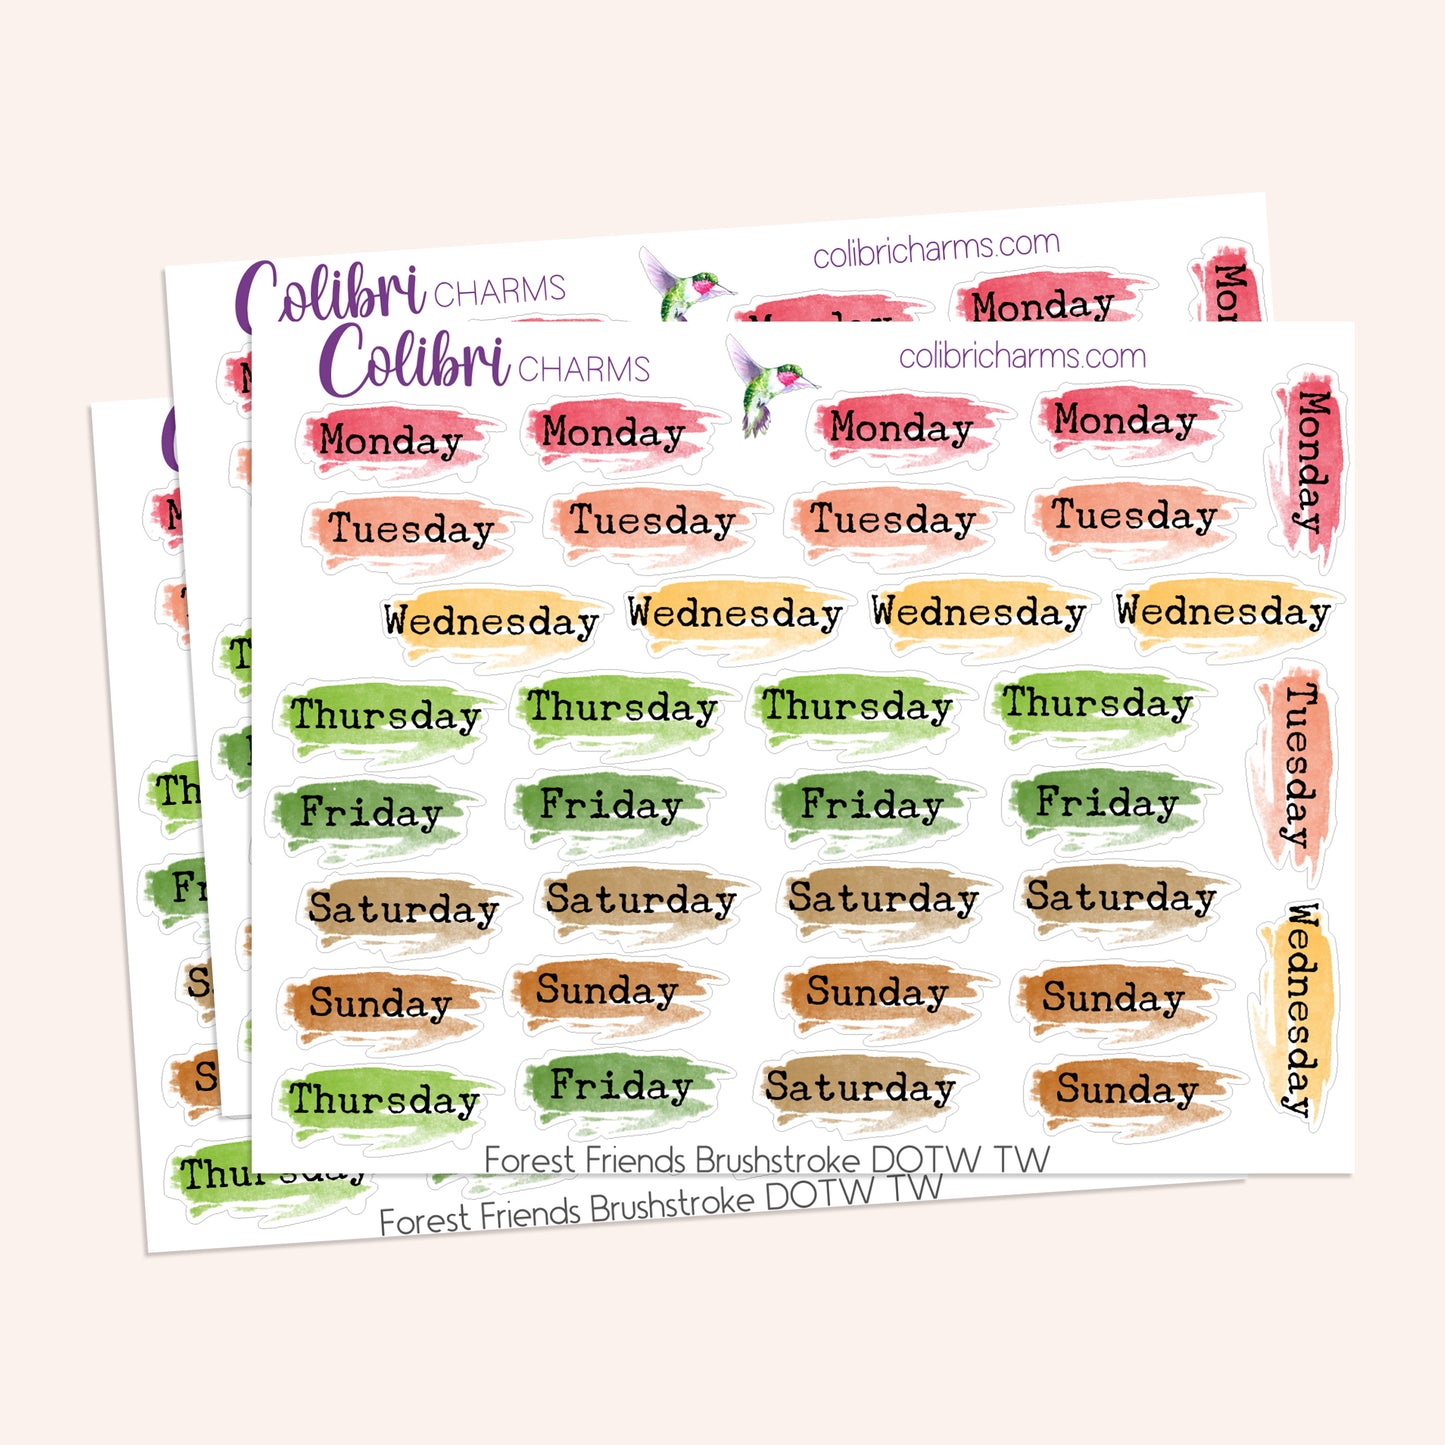 Colibri CHARMS
colibricharms.com
Monday
Monday
Mon
Colibri CHARMS
colibricharms.com
Monday Monday Monday Monday
Monday
Tuesday Tuesday Tuesday Tuesday
Wednesday Wednesday Wednesday Wednesday
Thursday Thursday Thursday Thursday
Tuesday
Friday Friday Friday Friday
Saturday Saturday Saturday Saturday
Wednesday
Sunday Sunday Sunday Sunday
Thursday Friday Saturday Sunday
Forest Friends Brushstroke DOTW TW
M
T
Th
Fr
S
S
Thursday
Forest Friends Brushstroke DOTW TW